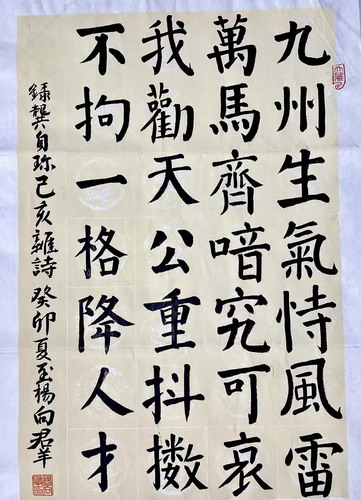 九州生氣恃風雷
萬馬齊喑究可哀
我勸天公重抖擻
不拘一格降人才
錄龔自珍己亥雜詩 癸卯夏至楊向群